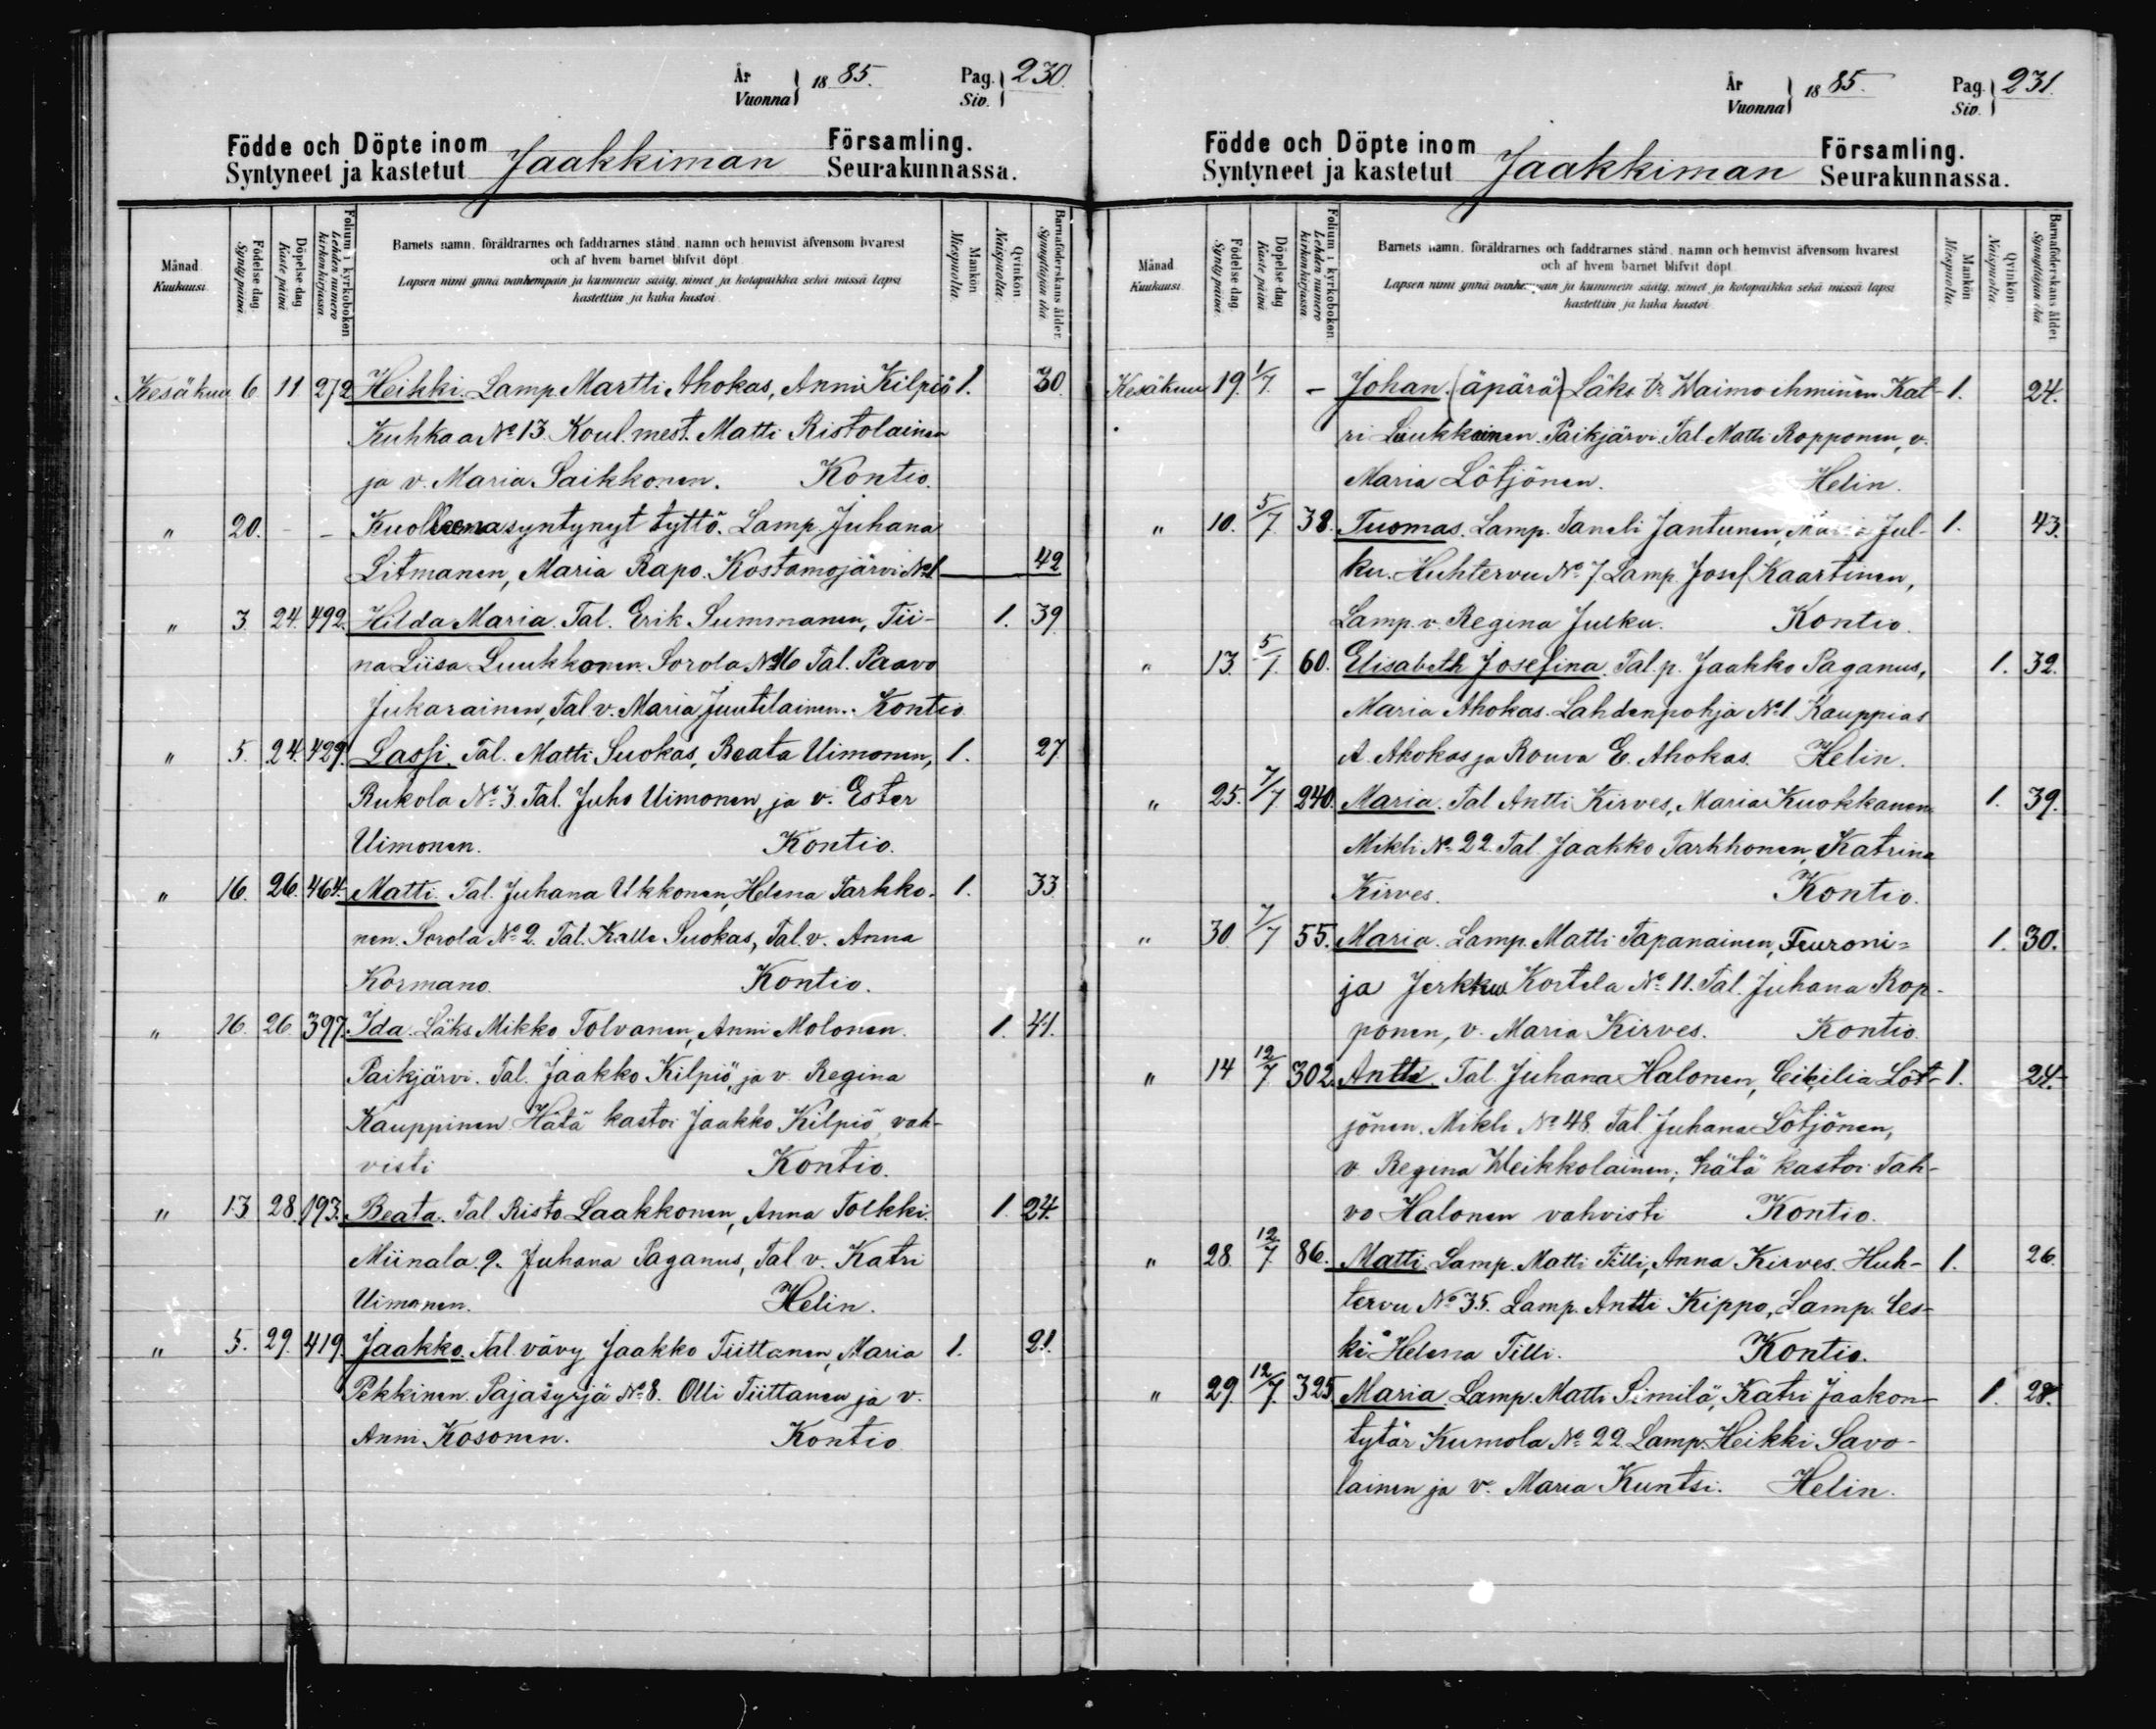 År
Vuonna
1885.
Pag.
Siv.
230.
Födde och Döpte inom
Syntyneet ja kastetut
Jaakkiman
Församling.
Seurakunnassa.
Månad
Kuukausi.
Födelse dag.
Synty päivä.
Döpelse dag
Kaste päivä
Folium i kyrkoboken
Lehden numero
kirkonkirjassa
Barnets namn, föräldrarnes och faddrarnes stånd, namn och hemvist äfvensom hvarest
och af hvem barnet blifvit döpt.
Lapsen nimi ynnä vanhempain ja kummein sääty, nimet ja kotopaikka sekä missä lapsi
kastettiin ja kuka kastoi.
Mankön
Miespuolia.
Qvinkön.
Naispuolia.
Barnaföderskans ålder.
Synnyttäjän ikä.
Kesäkuu 6 11 272 Heikki. Lamp. Martti Ahokas, Anni Kilpiö 1. 30.
Kuhkaa No 13. Koul. mest. Matti Ristolainen
ja v. Maria Saikkonen. Kontio.
" 20. - - Kuolleena syntynyt tyttö. Lamp. Juhana
Litmanen, Maria Rapo. Kostamojärvi No 1 42
" 3 24. 492. Hilda Maria. Tal. Erik Summanen, Tii- 1. 39
na Liisa Luukkonen. Sorola No 16 Tal. Paavo
Jukarainen, Tal. v. Maria Juutilainen. Kontio
" 5. 24. 429. Lassi. Tal. Matti Suokas, Beata Uimonen, 1. 27
Rukola No 3. Tal. Juho Uimonen, ja v. Ester
Uimonen. Kontio.
" 16. 26. 464. Matti. Tal. Juhana Ukkonen, Helena Tarkko- 1. 33
nen. Sorola No 2. Tal. Kalle Suokas, Tal. v. Anna
Kormano. Kontio.
" 16. 26. 397. Ida. Läks. Mikko Tolvanen, Anni Molonen. 1. 41.
Paikjärvi. Tal. Jaakko Kilpiö, ja v. Regina
Kauppinen. Hätä kastoi Jaakko Kilpiö, vah-
visti Kontio.
" 13. 28. 193. Beata. Tal. Risto Laakkonen, Anna Tolkki. 1. 24.
Miinala. 9. Juhana Paganus, Tal. v. Katri
Uimonen. Helin.
" 5. 29. 419. Jaakko. Tal. vävy Jaakko Tiittanen, Maria 1. 21.
Pekkinen. Pajasyrjä No 8. Olli Tiittanen ja v.
Anni Kosonen. Kontio
År
Vuonna
1885.
Pag.
Siv.
231.
Födde och Döpte inom
Syntyneet ja kastetut
Jaakkiman
Församling.
Seurakunnassa.
Månad
Kuukausi.
Födelse dag
Synty päivä.
Döpelse dag
Kaste päivä
Folium i kyrkoboken
Lehden numero
kirkonkirjassa
Barnets namn, föräldrarnes och faddrarnes stånd, namn och hemvist äfvensom hvarest
och af hvem barnet blifvit döpt.
Lapsen nimi ynnä vanhempain ja kummein sääty, nimet ja kotopaikka sekä missä lapsi
kastettiin ja kuka kastoi.
Mankön
Miespuolia.
Qvinkön
Naispuolia.
Barnaföderskans ålder
Synnyttäjän ikä.
Kesäkuu 19. 1/7. - Johan. (äpärä) Läks. Waimo ihminen Kat- 1. 24.
ri Liukkonen. Paikjärvi. Tal. Matti Ropponen, v.
Maria Lötjönen. Helin.
" 10. 5/7. 38. Tuomas. Lamp. Taneli Jantunen, Maria Jul- 1. 43.
ku. Huhtervu No 7. Lamp. Josef Kaartinen,
Lamp. v. Regina Julku. Kontio.
" 13. 5/7. 60. Elisabeth Josefina. Tal. p. Jaakko Paganus, 1. 32.
Maria Ahokas. Lahdenpohja No 1 Kauppias
A. Ahokas ja Rouva E. Ahokas. Helin.
" 25. 7/7 240. Maria. Tal. Antti Kirves, Maria Kuokkanen. 1. 39.
Mikli No 22. Tal. Jaakko Tarkkonen, Katrina
Kirves. Kontio.
" 30. 7/7 55. Maria. Lamp. Matti Tapanainen, Feuroni= 1. 30.
ja Jerkku. Kortela No 11. Tal. Juhana Rop-
ponen, v. Maria Kirves. Kontio.
" 14 12/7 302. Antti. Tal. Juhana Halonen, Cikilia Löt- 1. 24.
jönen. Mikli No 48. Tal. Juhana Lötjönen,
v. Regina Weikkolainen; hätä kastoi Tah-
vo Halonen vahvisti Kontio.
" 28. 12/7. 86. Matti. Lamp. Matti Tilli, Anna Kirves. Huh- 1. 26.
tervu No 35. Lamp. Antti Kippo, Lamp. les-
ki Helena Tilli. Kontio.
" 29. 12/7. 325. Maria. Lamp. Matti Similä, Katri Jaakon- 1. 28.
tytär Kumola No 22. Lamp. Heikki Savo-
lainen ja v. Maria Kuntsi. Helin.